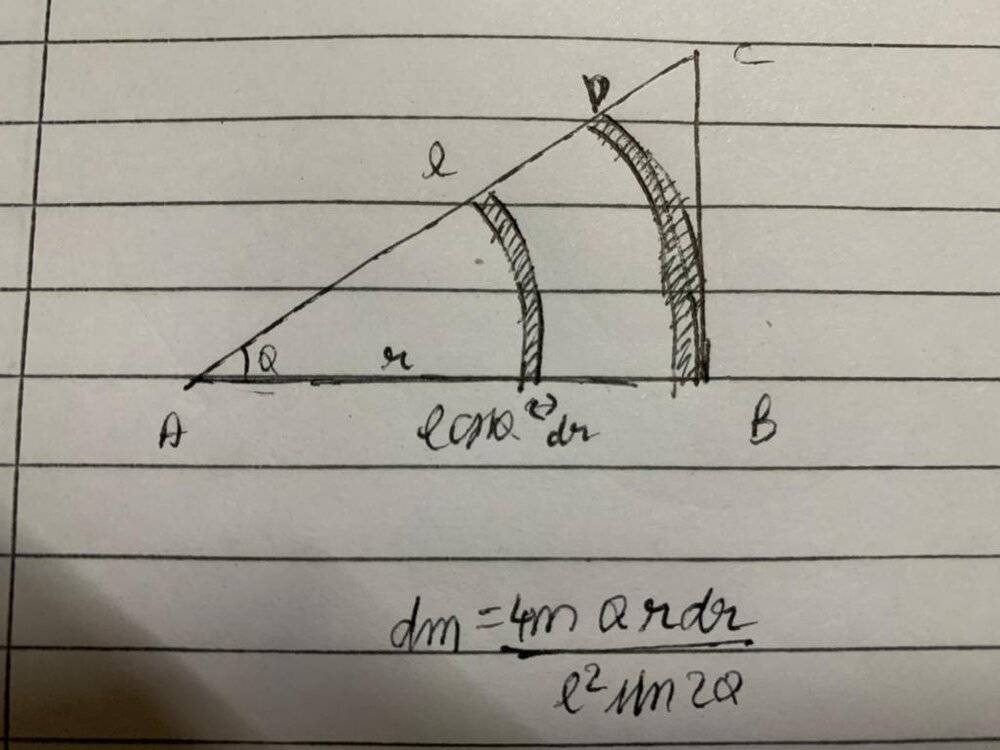 C
D
l
θ
r
A
l cosθ ↔ dr
B
dm = 4m θ r dr
l² sin 2θ